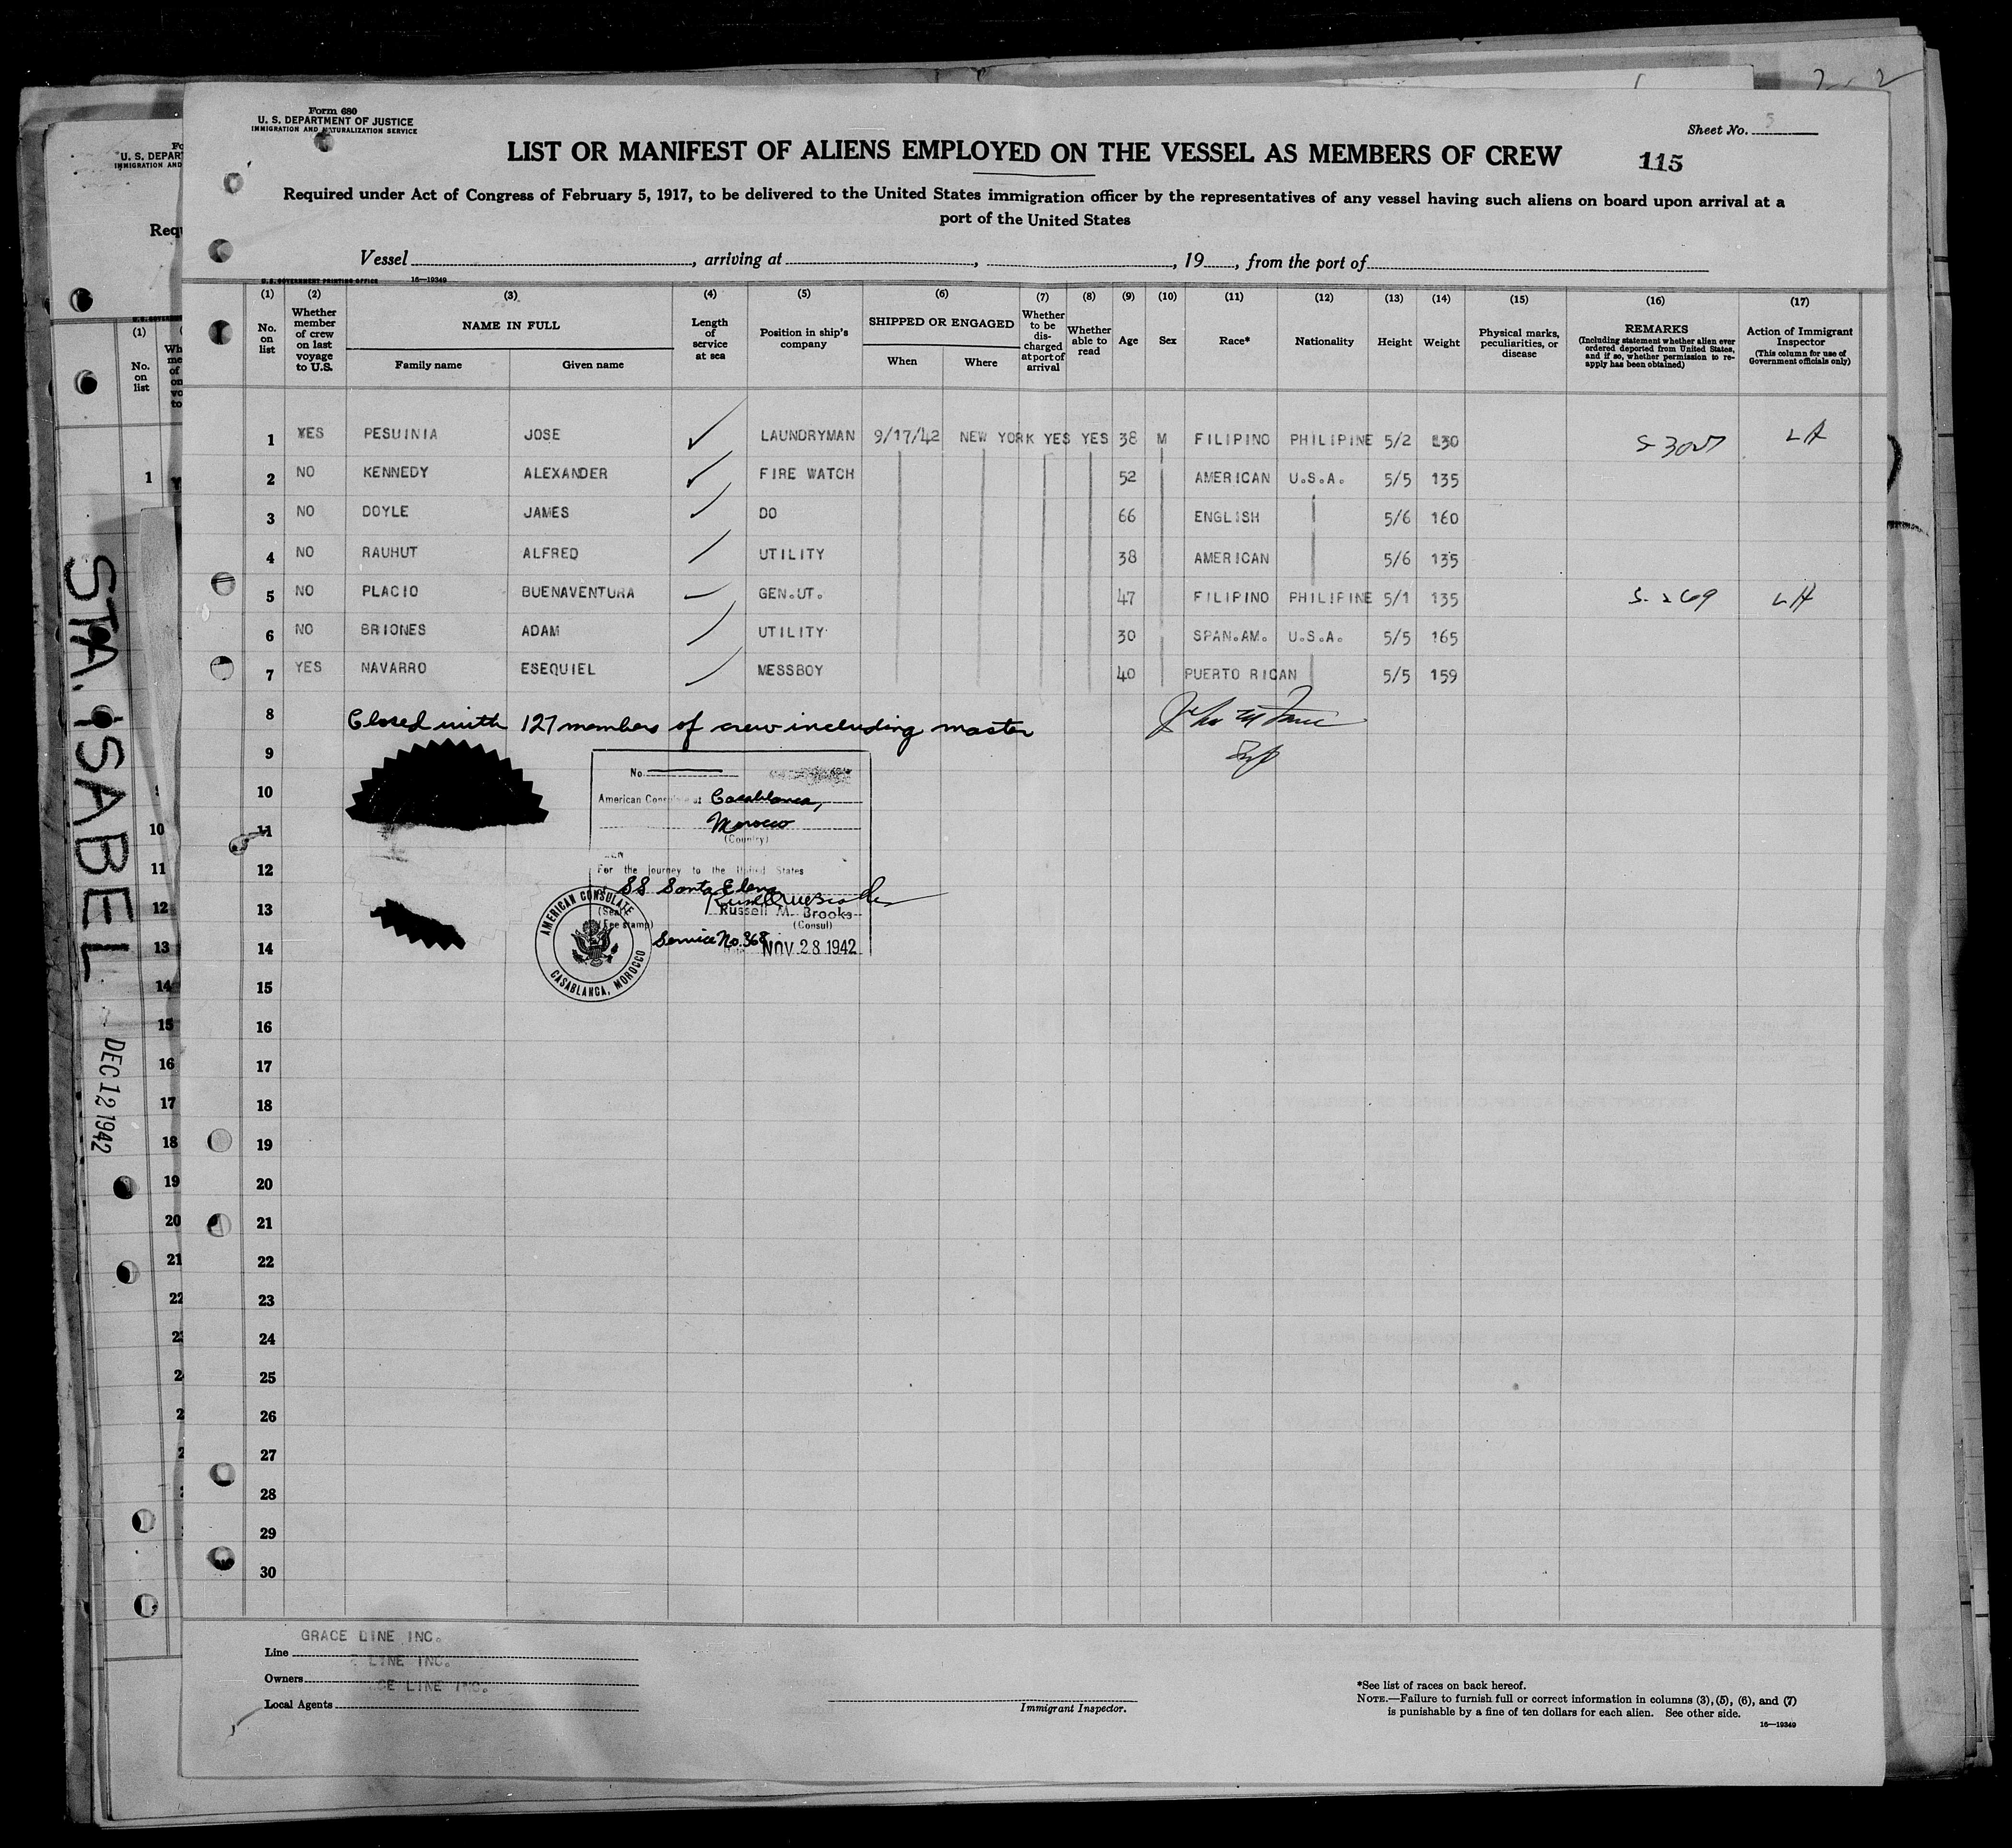 Form 680
U. S. DEPARTMENT OF JUSTICE
IMMIGRATION AND NATURALIZATION SERVICE
Sheet No. 5
LIST OR MANIFEST OF ALIENS EMPLOYED ON THE VESSEL AS MEMBERS OF CREW
115
Required under Act of Congress of February 5, 1917, to be delivered to the United States immigration officer by the representatives of any vessel having such aliens on board upon arrival at a
port of the United States
Vessel , arriving at , , 19 , from the port of
U. S. GOVERNMENT PRINTING OFFICE 16—19349
(1) (2) (3) (4) (5) (6) (7) (8) (9) (10) (11) (12) (13) (14) (15) (16) (17)
No. on list
Whether member of crew on last voyage to U.S.
NAME IN FULL
Family name
Given name
Length of service at sea
Position in ship's company
SHIPPED OR ENGAGED
When
Where
Whether to be discharged at port of arrival
Whether able to read
Age
Sex
Race*
Nationality
Height
Weight
Physical marks, peculiarities, or disease
REMARKS
(Including statement whether alien ever ordered deported from United States, and if so, whether permission to reapply has been obtained)
Action of Immigrant Inspector
(This column for use of Government officials only)
1 YES PESUINIA JOSE LAUNDRYMAN 9/17/42 NEW YORK YES YES 38 M FILIPINO PHILIPINE 5/2 130 LA
2 NO KENNEDY ALEXANDER FIRE WATCH 52 AMERICAN U.S.A. 5/5 135
3 NO DOYLE JAMES DO 66 ENGLISH 5/6 160
4 NO RAUHUT ALFRED UTILITY 38 AMERICAN 5/6 135
5 NO PLACIO BUENAVENTURA GEN.UT. 47 FILIPINO PHILIPINE 5/1 135 S-269 LA
6 NO BRIONES ADAM UTILITY 30 SPAN.AM. U.S.A. 5/5 165
7 YES NAVARRO ESEQUIEL MESSBOY 40 PUERTO RICAN 5/5 159
8 Closed with 127 members of crew including master
9
10
11
12
13
14
15
16
17
18
19
20
21
22
23
24
25
26
27
28
29
30
No.
American Consulate at Casablanca,
Morocco
(Country)
For the journey to the United States
SS Santa Elena
Russell M. Brooks
(Seal)
(Fee stamp)
(Consul)
Service No. 368
NOV 28 1942
AMERICAN CONSULATE
CASABLANCA, MOROCCO
STA. ISABEL
DEC 12 1942
GRACE LINE INC.
Line
LINE INC.
Owners
CE LINE INC.
Local Agents
Immigrant Inspector.
*See list of races on back hereof.
NOTE.—Failure to furnish full or correct information in columns (3), (5), (6), and (7)
is punishable by a fine of ten dollars for each alien. See other side.
16—19349